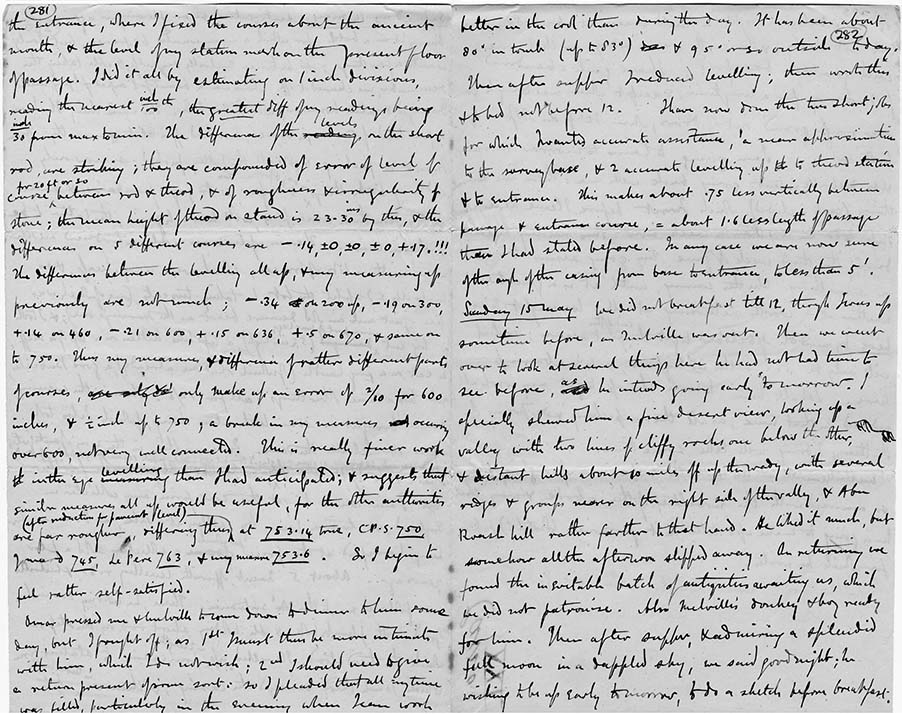 281
the entrance, where I fixed the courses about the ancient
mouth, & the level of my station mark on the present floor
of passage. I did it all by estimating on 1 inch divisions,
reading the nearest inch/100 th, the greatest diff of my readings being
inch/30 from max to min. The difference of the levels on the short
rod, are striking; they are compounded of error of level of
for 20 ft or so
course between rod & theod, & of roughness & irregularity of
stone; the mean height of theod on stand is 23.30 ins by this, & the
differences on 5 different courses are − .14, ±0, ±0, ±0, +.17.!!!
The differences between the levelling all up, & my measuring up
previously are not much; − .34 on 200 up, − .19 on 300,
+.14 on 460, − .21 on 600, +.15 on 636, +.5 on 670, & same on
to 750. Thus my measures, & difference of rather different parts
of courses, only make up an error of 2/10 for 600
inches, & ½ inch up to 750; a break in my measures occurring
over 600, not very well connected. This is really finer work
in the levelling than I had anticipated; & suggests that
similar measures all up would be useful, for the other authorities
(after reduction for pavement level)
are far rougher, differing thus at 753.14 true, C.P.S. 750,
Jomard 745, Le Pere 763, & my measure 753.6. So I begin to
feel rather self-satisfied.
Omar pressed me & Melville to come down to dinner to him some
day, but I fought off; as 1st I must thus be more intimate
with him, which I do not wish; 2nd I should need to give
a return present of some sort. So I pleaded that all my time
was filled, particularly in the evening when I can work
282
better in the cool than during the day. It has been about
80° in tomb (up to 83°) & 95° or so outside today.
Then after supper I reduced levelling; then wrote this
& to bed not before 12. I have now done the two short jobs
for which I wanted accurate assistance, 1 a mean approximation
to the survey base, & 2 accurate levelling up to theod station
& to entrance. This makes about .75 less vertically between
passage & entrance course, = about 1.6 less length of passage
than I had stated before. In any case we are now sure
of the angle of the casing from base to entrance, to less than 5'.
Sunday 15 May We did not breakfast till 12, though I was up
sometime before, as Melville was out. Then we went
over to look at several things here he had not had time to
see before, as he intends going early tomorrow. I
specially shewed him a fine desert view, looking up a
valley with two lines of cliffy rocks one below the other,
& distant hills about 10 miles off up the wady, with several
ridges & groups nearer on the right side of the valley, & Abu
Roash hill rather farther to that hand. He liked it much, but
somehow all the afternoon slipped away. On returning we
found the inevitable batch of antiquities awaiting us, which
we did not patronise. Also Melville's donkey & boy ready
for him. Then after supper, & admiring a splendid
full moon in a dappled sky, we said goodnight; he
wishing to be up early tomorrow, to do a sketch before breakfast.